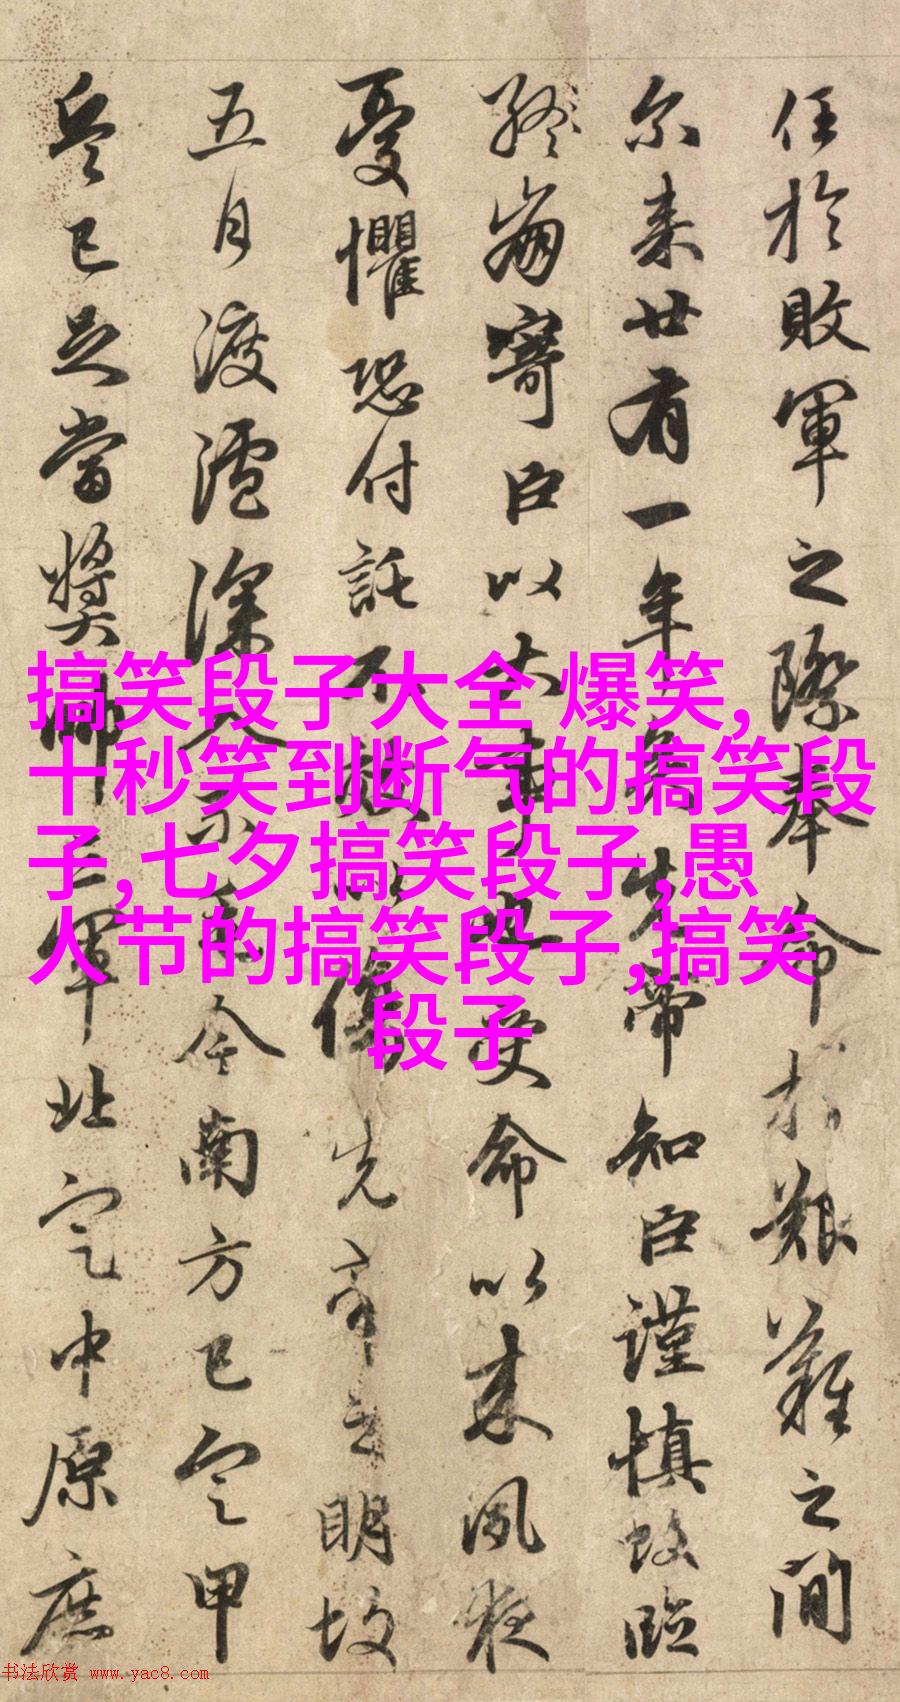 任於敗軍之際奉命於艱難之間
尔来廿有一年矣先帝知臣謹慎故臨
終崩寄臣以大事也受命以来夙夜
憂懼恐付託不效以傷先帝之明故
五月渡瀘深入不毛今南方已定甲
兵已足當獎帥三軍北定中原庶
搞笑段子大全 爆笑,
十秒笑到断气的搞笑段
子,七夕搞笑段子,愚
人节的搞笑段子,搞笑
段子
书法欣赏 www.yac8.com